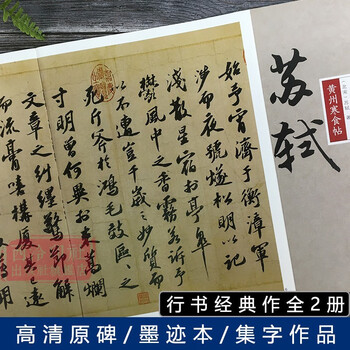 苏轼
黄州寒食帖
始予宵濟于衡漳軍
涉而夜號燧松明以記
淺散星宿於亭皋
欝風中之香霧若訴予
以不遭豈千歲之妙質而
死斤斧於鴻毛效區〻之
寸明曾何異於束蒿爛
文章之糾纏驚節解
而流膏嘻構厦其已遠
行书经典作全2册
高清原碑/墨迹本/集字作品